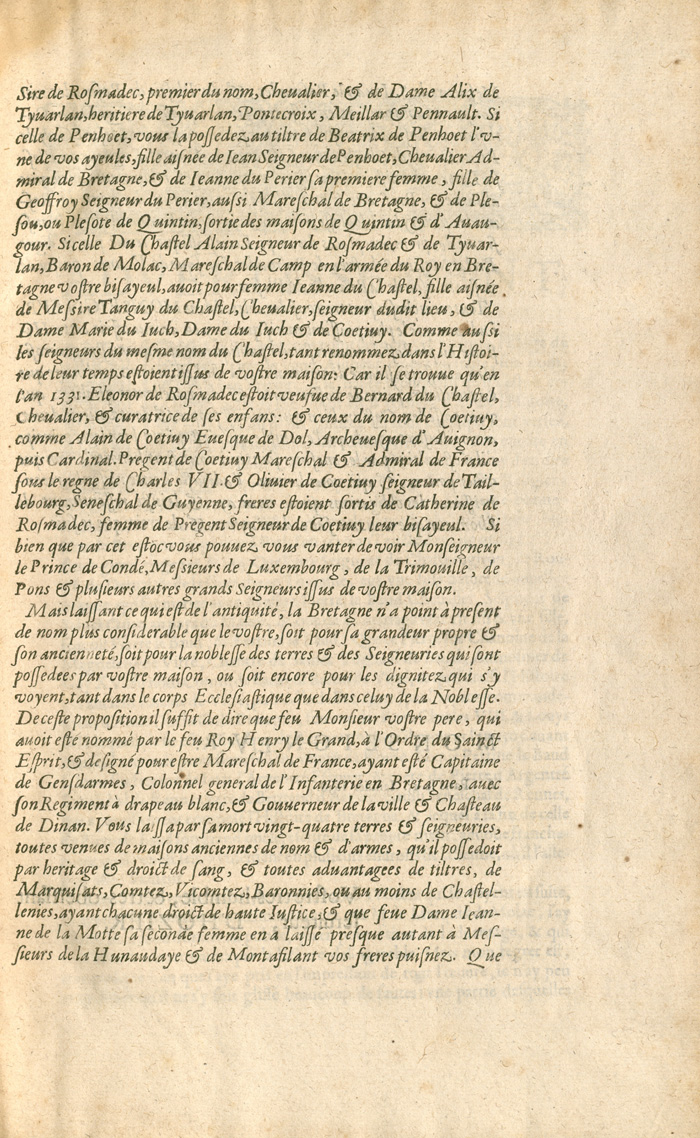 Sire de Roſmadec, premier du nom, Cheualier, & de Dame Alix de
Tyuarlan, heritiere de Tyuarlan, Pontecroix, Meillar & Pennault. Si
celle de Penhoet, vous la poſſedez au tiltre de Beatrix de Penhoet l'v-
ne de vos ayeules, fille aiſnée de Iean Seigneur de Penhoet, Cheualier Ad-
miral de Bretagne, & de Ieanne du Perier ſa premiere femme, fille de
Geoffroy Seigneur du Perier, auſsi Mareſchal de Bretagne, & de Ple-
ſou, ou Pleſote de Quintin, ſortie des maiſons de Quintin & d'Auau-
gour. Si celle Du Chaſtel Alain Seigneur de Roſmadec & de Tyuar-
lan, Baron de Molac, Mareſchal de Camp en l'armée du Roy en Bre-
tagne voſtre biſayeul, auoit pour femme Ieanne du Chaſtel, fille aiſnée
de Meſsire Tanguy du Chaſtel, Cheualier, ſeigneur dudit lieu, & de
Dame Marie du Iuch, Dame du Iuch & de Coetiuy. Comme auſsi
les ſeigneurs du meſme nom du Chaſtel, tant renommez dans l'Hiſtoi-
re de leur temps eſtoient iſſus de voſtre maiſon: Car il ſe trouue qu'en
l'an 1331. Eleonor de Roſmadec eſtoit veufue de Bernard du Chaſtel,
Cheualier, & curatrice de ſes enfans: & ceux du nom de Coetiuy,
comme Alain de Coetiuy Eueſque de Dol, Archeueſque d'Auignon,
puis Cardinal. Pregent de Coetiuy Mareſchal & Admiral de France
ſous le regne de Charles VII. & Oliuier de Coetiuy ſeigneur de Tail-
lebourg, Seneſchal de Guyenne, freres eſtoient ſortis de Catherine de
Roſmadec, femme de Pregent Seigneur de Coetiuy leur biſayeul. Si
bien que par cet eſtoc vous pouuez vous vanter de voir Monſeigneur
le Prince de Condé, Meſsieurs de Luxembourg, de la Trimouille, de
Pons & pluſieurs autres grands Seigneurs iſſus de voſtre maiſon.
Mais laiſſant ce qui eſt de l'antiquité, la Bretagne n'a point à preſent
de nom plus conſiderable que le voſtre, ſoit pour ſa grandeur propre &
ſon ancienneté, ſoit pour la nobleſſe des terres & des Seigneuries qui ſont
poſſedees par voſtre maiſon, ou ſoit encore pour les dignitez qui s'y
voyent, tant dans le corps Eccleſiaſtique que dans celuy de la Nobleſſe.
De ceſte propoſition il ſuffit de dire que feu Monſieur voſtre pere, qui
auoit eſté nommé par le feu Roy Henry le Grand, à l'Ordre du Sainct
Eſprit, & deſigné pour eſtre Mareſchal de France, ayant eſté Capitaine
de Genſdarmes, Colonnel general de l'Infanterie en Bretagne, auec
ſon Regiment à drapeau blanc, & Gouuerneur de la ville & Chaſteau
de Dinan. Vous laiſſa par ſa mort vingt-quatre terres & ſeigneuries,
toutes venues de maiſons anciennes de nom & d'armes, qu'il poſſedoit
par heritage & droict de ſang, & toutes aduantagees de tiltres, de
Marquiſats, Comtez, Vicomtez, Baronnies, ou au moins de Chaſtel-
lenies, ayant chacune droict de haute Iuſtice, & que feue Dame Iean-
ne de la Motte ſa ſeconde femme en a laiſſé preſque autant à Meſ-
ſieurs de la Hunaudaye & de Montafilant vos freres puiſnez. Que